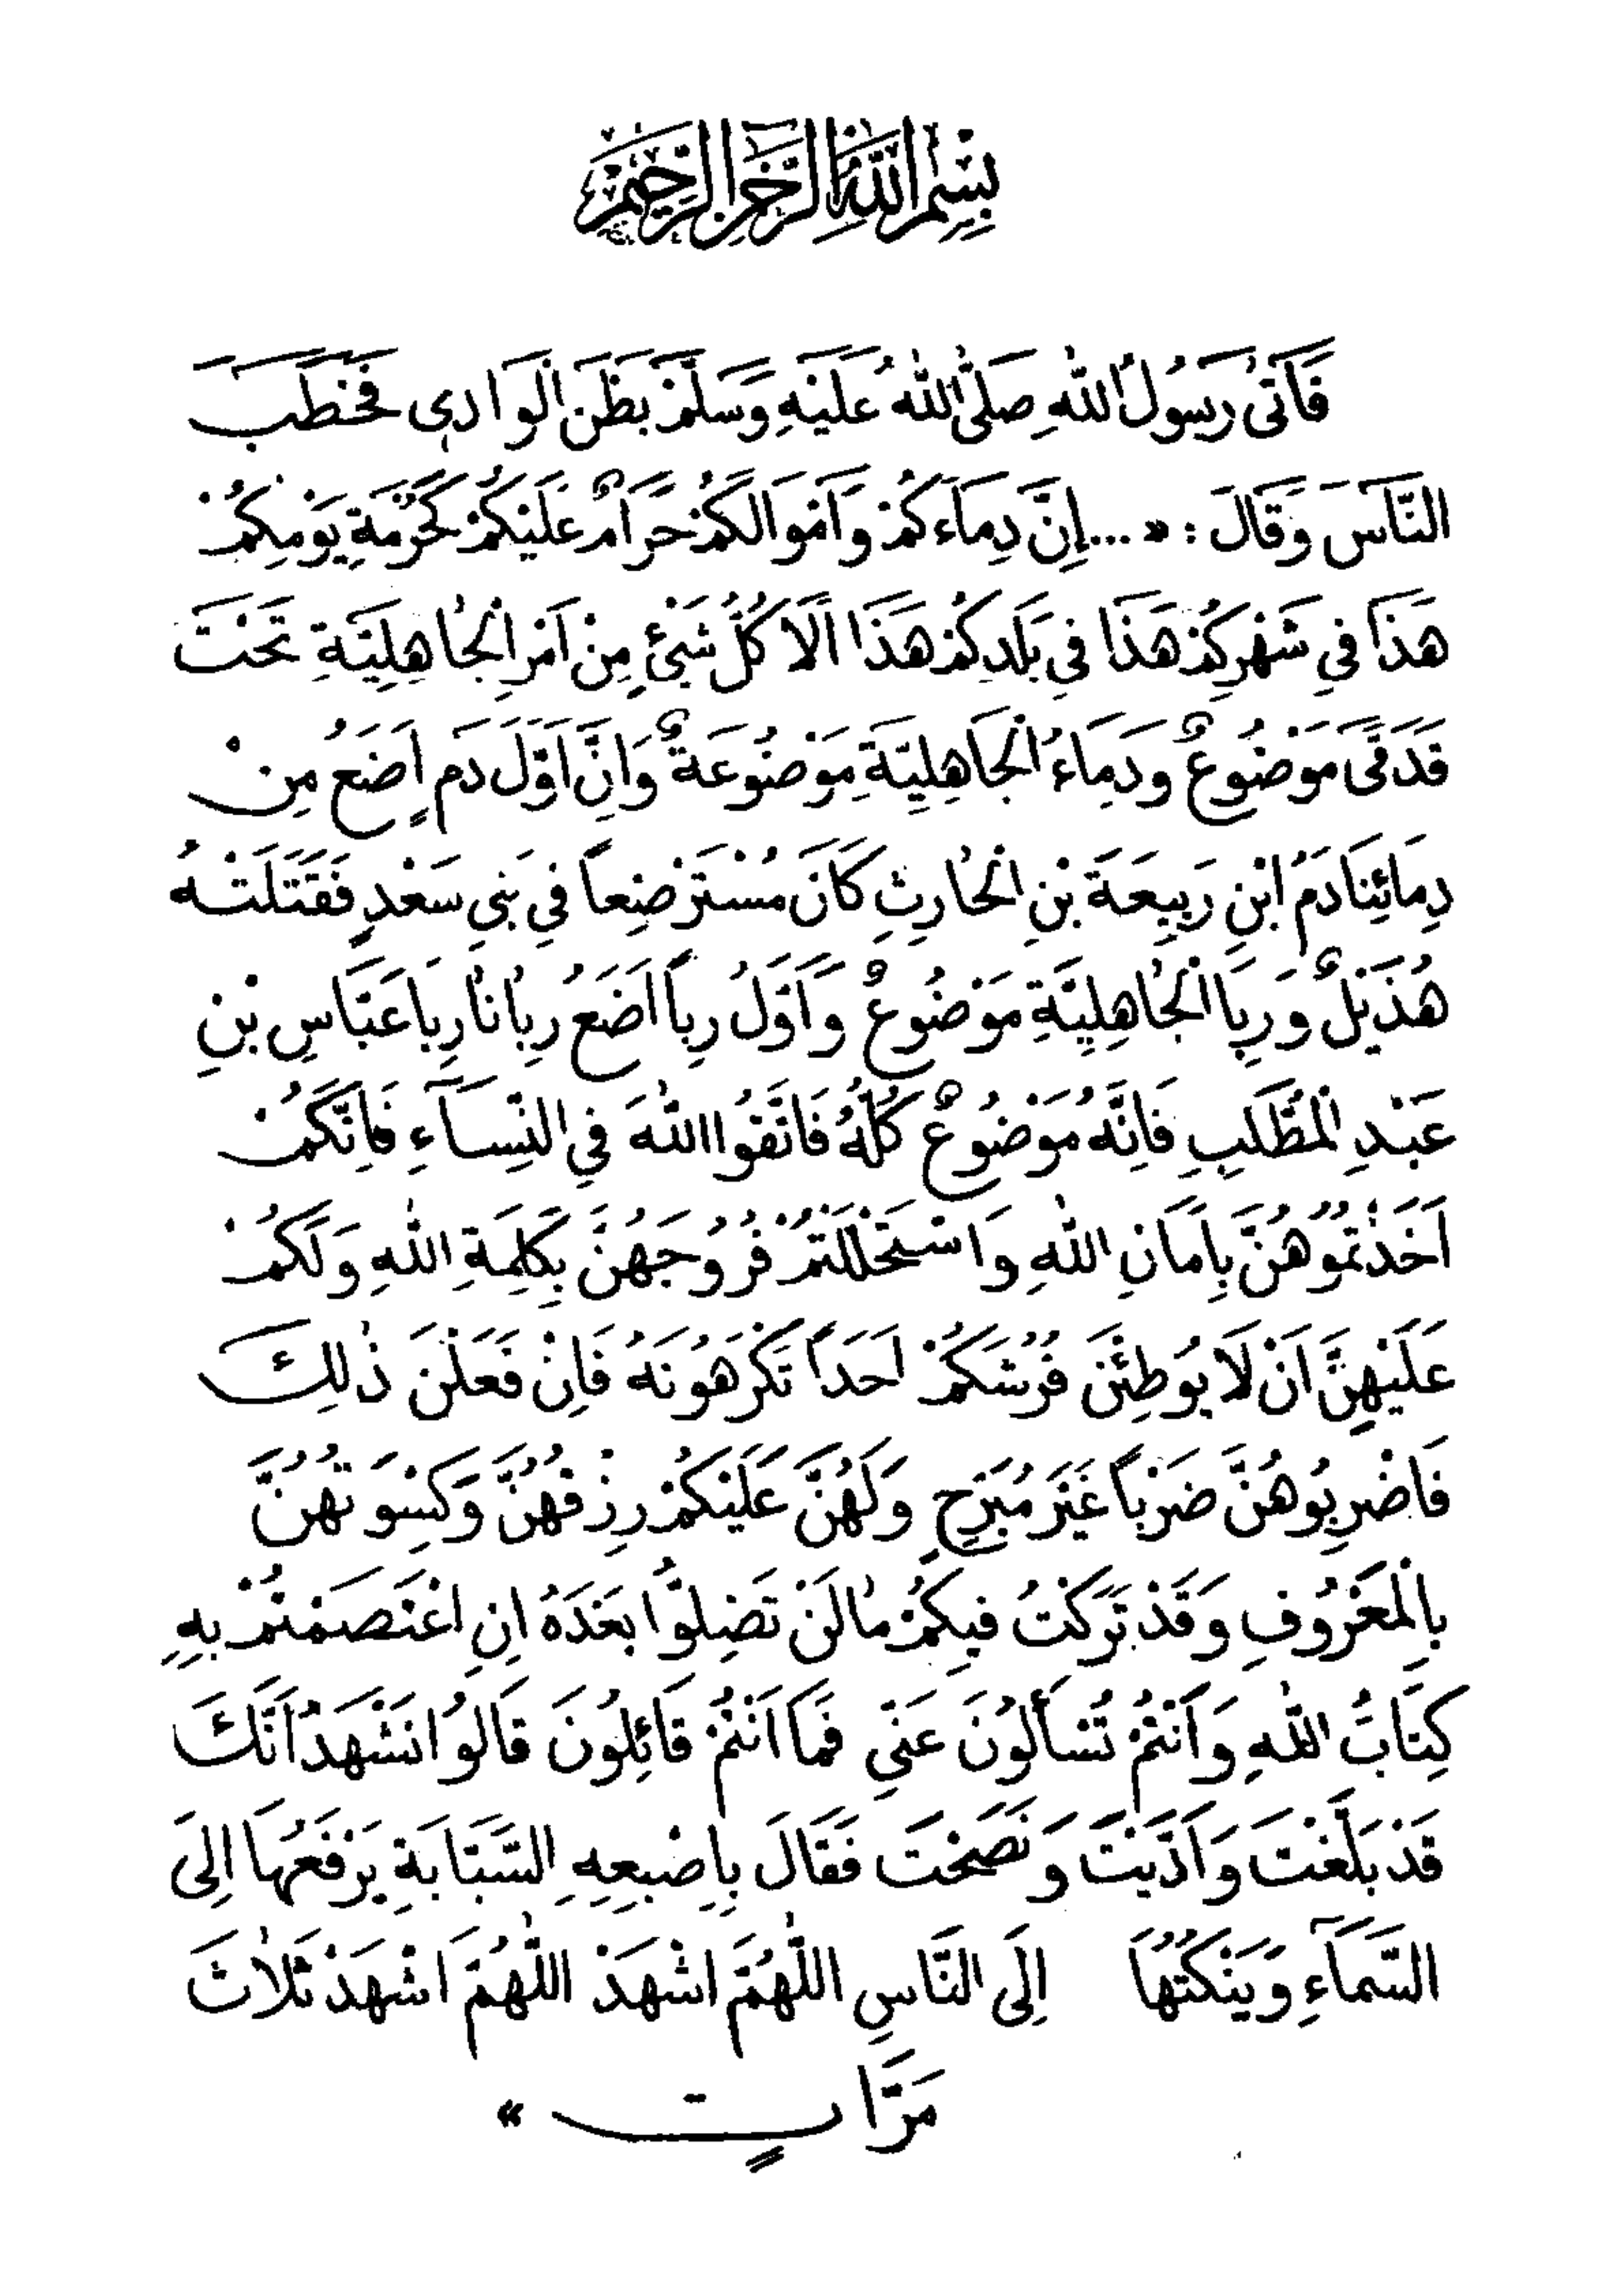 بِسْمِ اللّٰهِ الرَّحْمٰنِ الرَّحِيمِ
فَاَتَىٰ رَسُولُ اللّٰهِ صَلَّى اللّٰهُ عَلَيْهِ وَسَلَّمَ بَطْنَ الْوَادِي فَخَطَبَ
النَّاسَ وَقَالَ : « ...إِنَّ دِمَاءَكُمْ وَاَمْوَالَكُمْ حَرَامٌ عَلَيْكُمْ كَحُرْمَةِ يَوْمِكُمْ
هَذَا فِي شَهْرِكُمْ هَذَا فِي بَلَدِكُمْ هَذَا اَلَا كُلُّ شَيْئٍ مِنْ اَمْرِ الْجَاهِلِيَّةِ تَحْتَ
قَدَمَيَّ مَوْضُوعٌ وَدِمَاءُ الْجَاهِلِيَّةِ مَوْضُوعَةٌ وَاِنَّ اَوَّلَ دَمٍ اَضَعُ مِنْ
دِمَائِنَا دَمُ ابْنِ رَبِيعَةَ بْنِ الْحَارِثِ كَانَ مُسْتَرْضِعاً فِي بَنِي سَعْدٍ فَقَتَلَتْهُ
هُذَيْلٌ وَرِبَا الْجَاهِلِيَّةِ مَوْضُوعٌ وَاَوَّلُ رِباً اَضَعُ رِبَانَا رِبَا عَبَّاسِ بْنِ
عَبْدِ الْمُطَّلِبِ فَاِنَّهُ مَوْضُوعٌ كُلُّهُ فَاتَّقُوا اللّٰهَ فِي النِّسَآءِ فَاِنَّكُمْ
اَخَذْتُمُوهُنَّ بِاَمَانِ اللّٰهِ وَاسْتَحْلَلْتُمْ فُرُوجَهُنَّ بِكَلِمَةِ اللّٰهِ وَلَكُمْ
عَلَيْهِنَّ اَنْ لَا يُوطِئْنَ فُرُشَكُمْ اَحَدًا تَكْرَهُونَهُ فَاِنْ فَعَلْنَ ذٰلِكَ
فَاضْرِبُوهُنَّ ضَرْباً غَيْرَ مُبَرِّحٍ وَلَهُنَّ عَلَيْكُمْ رِزْقُهُنَّ وَكِسْوَتُهُنَّ
بِالْمَعْرُوفِ وَقَدْ تَرَكْتُ فِيكُمْ مَا لَنْ تَضِلُّوا بَعْدَهُ اِنِ اعْتَصَمْتُمْ بِهِ
كِتَابُ اللّٰهِ وَاَنْتُمْ تُسْأَلُونَ عَنِّي فَمَا اَنْتُمْ قَائِلُونَ قَالُوا نَشْهَدُ اَنَّكَ
قَدْ بَلَّغْتَ وَاَدَّيْتَ وَنَصَحْتَ فَقَالَ بِاِصْبَعِهِ السَّبَّابَةِ يَرْفَعُهَا اِلَى
السَّمَآءِ وَيَنْكُتُهَا اِلَى النَّاسِ اللّٰهُمَّ اشْهَدْ اللّٰهُمَّ اشْهَدْ ثَلَاثَ
مَرَّاتٍ »